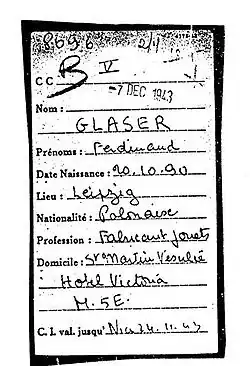 8696
C C B V
-7 DEC 1943
Nom :
GLASER
Prénoms : Ferdinand
Date Naissance : 20.10.90
Lieu : Leipzig
Nationalité : Polonaise
Profession : Fabricant Jouets
Domicile : St Martin Vesubie
Hotel Victoria
M. 5E.
C. I. val. jusqu' Nice 24.11.43